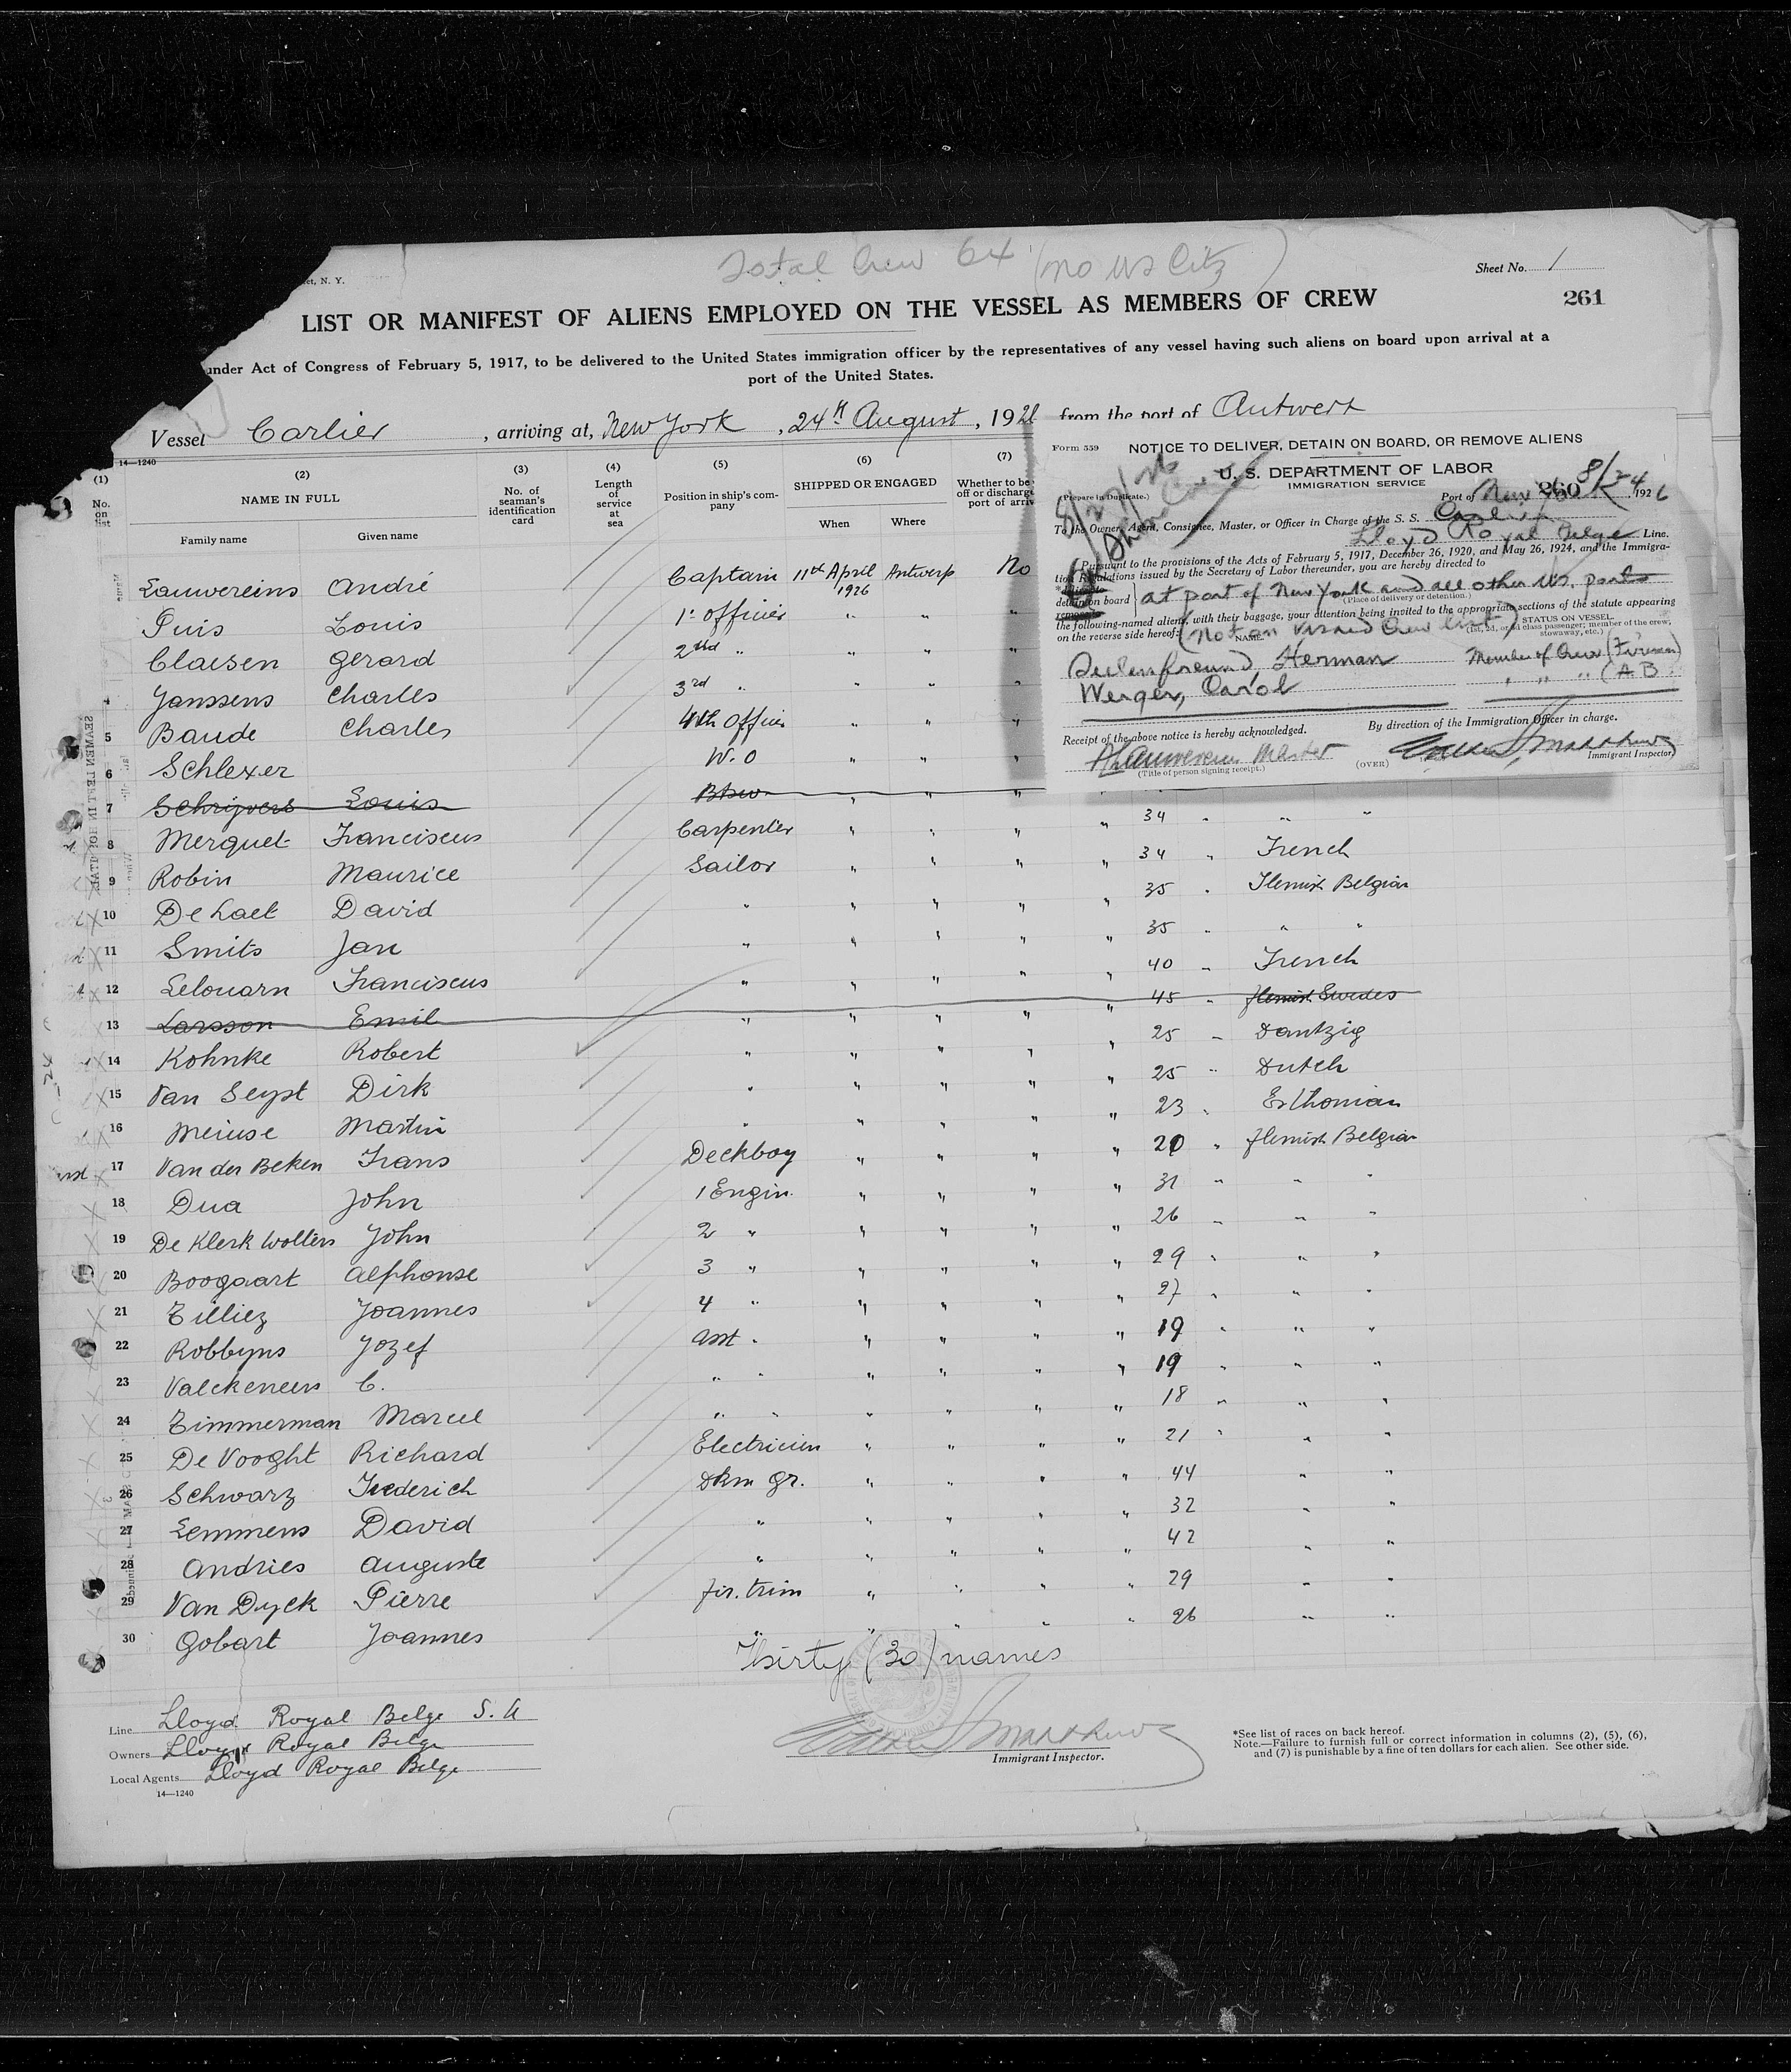 Total Crew 64 (no US Citz)
et, N. Y.
Sheet No. 1
261
LIST OR MANIFEST OF ALIENS EMPLOYED ON THE VESSEL AS MEMBERS OF CREW
under Act of Congress of February 5, 1917, to be delivered to the United States immigration officer by the representatives of any vessel having such aliens on board upon arrival at a
port of the United States.
Vessel Carlier, arriving at, New York, 24th August, 192 from the port of Antwerp
14—1240
(1) (2) (3) (4) (5) (6) (7)
No. on list
NAME IN FULL
Family name Given name
No. of seaman's identification card
Length of service at sea
Position in ship's company
SHIPPED OR ENGAGED
When Where
Whether to be
off or discharge
port of arriv
Form 559
NOTICE TO DELIVER, DETAIN ON BOARD, OR REMOVE ALIENS
U. S. DEPARTMENT OF LABOR
IMMIGRATION SERVICE
(Prepare in Duplicate.)
Port of New Yo 260 8/24 1926
To the Owner, Agent, Consignee, Master, or Officer in Charge of the S. S. Carlier
Lloyd Royal Belge Line.
Pursuant to the provisions of the Acts of February 5, 1917, December 26, 1920, and May 26, 1924, and the Immigra-
tion Regulations issued by the Secretary of Labor thereunder, you are hereby directed to
detain on board at port of New York and all other U.S. ports
(Place of delivery or detention.)
the following-named aliens, with their baggage, your attention being invited to the appropriate sections of the statute appearing
on the reverse side hereof: (Not on visaed Crew list)
NAME.
STATUS ON VESSEL
(1st, 2d, or 3d class passenger; member of the crew; stowaway, etc.)
Herman Member of Crew (Fireman)
Werger, Carol " " " (A B
Receipt of the above notice is hereby acknowledged.
By direction of the Immigration Officer in charge.
A Lauwereins Master
(Title of person signing receipt.)
(OVER)
Immigrant Inspector
Lauwereins André Captain 11th April 1926 Antwerp No
Puis Louis 1° officier " " "
Claesen Gerard 2nd " " " "
4 Janssens Charles 3rd " " " "
5 Baude Charles 4th officier " " "
6 Schlexer W. O " " "
7 Schrijvers Louis Btsw " " "
8 Merquet Franciscus Carpenter " " " " 34 " " "
9 Robin Maurice Sailor " " " " 34 " French
10 De Laet David " " " " " 35 " Flemish Belgian
11 Smits Jan " " " " " 35 " " "
12 Lelouarn Franciscus " " " " " 40 " French
13 Larsson Emil " " " " " 45 " flemish Swedes
14 Kohnke Robert " " " " " 25 " Dantzig
15 Van Seyst Dirk " " " " " 25 " Dutch
16 Meiuse Martin " " " " " 23 " Esthonian
17 Van der Beken Frans Deckboy " " " " 20 " flemish Belgian
18 Dua John 1 Engin. " " " " 31 " " "
19 De Klerk Wolters John 2 " " " " " 26 " " "
20 Boogaart Alphonse 3 " " " " " 29 " " "
21 Tilliez Joannes 4 " " " " " 27 " " "
22 Robbyns Jozef asst " " " " " 19 " " "
23 Valckeneers C. " " " " " " 19 " " "
24 Timmerman Marcel " " " " " " 18 " " "
25 De Vooght Richard Electricien " " " " 21 " " "
26 Schwarz Frederich Dkm gr. " " " " 44 " "
27 Lemmens David " " " " " 32 "
28 Andries Auguste " " " " " 42 " "
29 Van Dyck Pierre fir. trim " " " " 29 " "
30 Gobart Joannes " " " " " 26 " "
Thirty (30) names
Line Lloyd Royal Belge S. A
Owners Lloyd Royal Belge
Local Agents Lloyd Royal Belge
14—1240
Immigrant Inspector.
*See list of races on back hereof.
Note.—Failure to furnish full or correct information in columns (2), (5), (6),
and (7) is punishable by a fine of ten dollars for each alien. See other side.